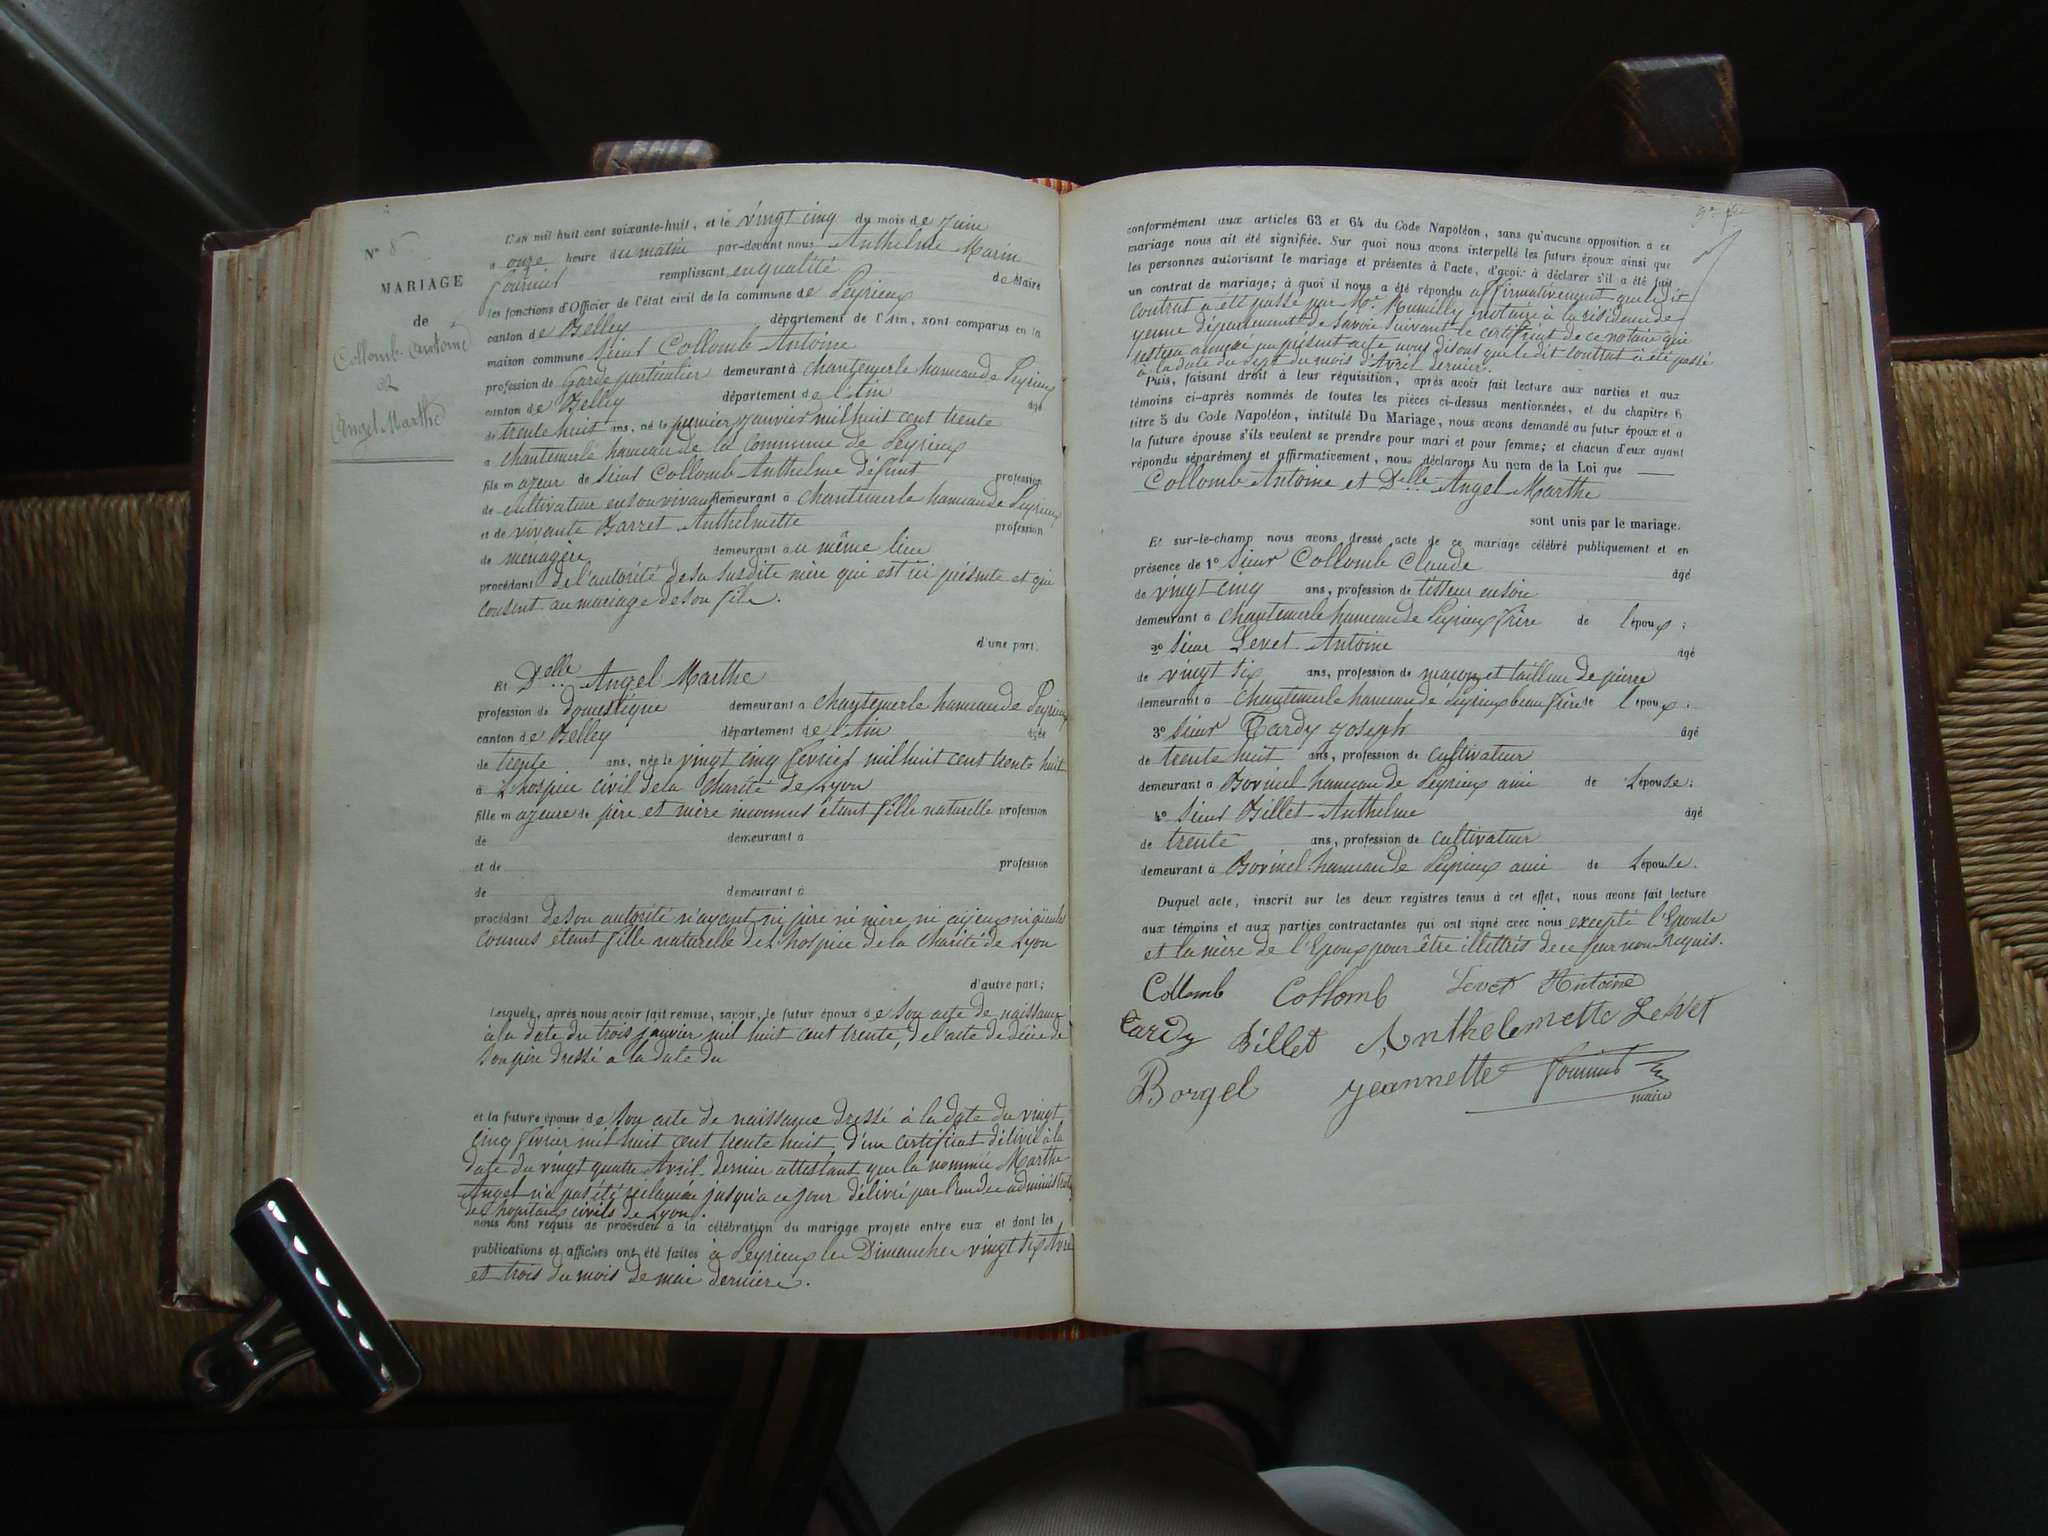 N° 8
MARIAGE
de
Collomb Antoine
et
Angel Marthe
L'an mil huit cent soixante-huit, et le vingt cinq du mois de Juin
à onze heure du matin par-devant nous Anthelme Marin
fournit remplissant en qualité de Maire
les fonctions d'Officier de l'état civil de la commune de Peyrieux
canton de Belley département de l'Ain, sont comparus en la
maison commune Sieur Collomb Antoine
profession de Garde particulier demeurant à Chantemerle hameau de Peyrieux
canton de Belley département de l'Ain âgé
de trente huit ans, né le premier Janvier mil huit cent trente
à Chantemerle hameau de la commune de Peyrieux
fils majeur de Sieur Collomb Anthelme défunt profession
de cultivateur en son vivant demeurant à Chantemerle hameau de Peyrieux
et de vivante Barret Anthelmette profession
de ménagère demeurant au même lieu
procédant de l'autorité de sa susdite mère qui est ici présente et qui
consent au mariage de son fils.
d'une part.
Et Delle Angel Marthe
profession de domestique demeurant à Chantemerle hameau de Peyrieux
canton de Belley département de l'Ain âgée
de trente ans, née le vingt cinq février mil huit cent trente huit
à L'hospice civil de la Charité de Lyon
fille majeure de père et mère inconnus étant fille naturelle profession
de demeurant à
et de profession
de demeurant à
procédant de son autorité n'ayant ni père ni mère ni aÿeux ni aÿeules
connus étant fille naturelle de L'hospice de la Charité de Lyon
d'autre part;
Lesquels, après nous avoir fait remise, savoir, le futur époux de son acte de naissance
à la date du trois janvier mil huit cent trente, de l'acte de décès de
son père dressé à la date du
et la future épouse de son acte de naissance dressé à la date du vingt
cinq février mil huit cent trente huit, d'un certificat délivré à la
date du vingt quatre Avril dernier attestant que la nommée Marthe
Angel n'a pas été réclamée jusqu'à ce jour délivré par l'un des administrateurs
des hopitaux civils de Lyon.
nous ont requis de procéder à la célébration du mariage projeté entre eux et dont les
publications et affiches ont été faites à Peyrieux les Dimanches vingt six Avril
et trois du mois de mai derniers.
conformément aux articles 63 et 64 du Code Napoléon, sans qu'aucune opposition à ce
mariage nous ait été signifiée. Sur quoi nous avons interpellé les futurs époux ainsi que
les personnes autorisant le mariage et présentes à l'acte, d'avoir à déclarer s'il a été fait
un contrat de mariage; à quoi il nous a été répondu affirmativement que ledit
contrat a été passé par Me Rumilly notaire à la résidence de
yenne département de Savoie suivant le certificat de ce notaire qui
restera annexé au présent acte nous disons que ledit contrat a été passé
à la date du Sept du mois d'Avril dernier.
Puis, faisant droit à leur réquisition, après avoir fait lecture aux parties et aux
témoins ci-après nommés de toutes les pièces ci-dessus mentionnées, et du chapitre 6
titre 5 du Code Napoléon, intitulé Du Mariage, nous avons demandé au futur époux et à
la future épouse s'ils veulent se prendre pour mari et pour femme; et chacun d'eux ayant
répondu séparément et affirmativement, nous déclarons Au nom de la Loi que
Collomb Antoine et Delle Angel Marthe
sont unis par le mariage.
Et sur-le-champ nous avons dressé acte de ce mariage célébré publiquement et en
présence de 1° Sieur Collomb Claude âgé
de vingt cinq ans, profession de tisseur en soie
demeurant à Chantemerle hameau de Peyrieux frère de l'époux;
2° Sieur Levet Antoine âgé
de vingt six ans, profession de maçon et tailleur de pierre
demeurant à Chantemerle hameau de Peyrieux beau frère de l'époux;
3° Sieur Tardy Joseph âgé
de trente huit ans, profession de cultivateur
demeurant à Bovinel hameau de Peyrieux ami de L'épouse;
4° Sieur Billet Anthelme âgé
de trente ans, profession de cultivateur
demeurant à Bovinel hameau de Peyrieux ami de L'épouse.
Duquel acte, inscrit sur les deux registres tenus à cet effet, nous avons fait lecture
aux témoins et aux parties contractantes qui ont signé avec nous excepté l'Epouse
et la mère de l'Epoux pour être illettrés de ce faire requis.
Collomb Collomb Levet Antoine
Tardy Billet Anthelemette Levet
Borgel Jeannette fournit
maire